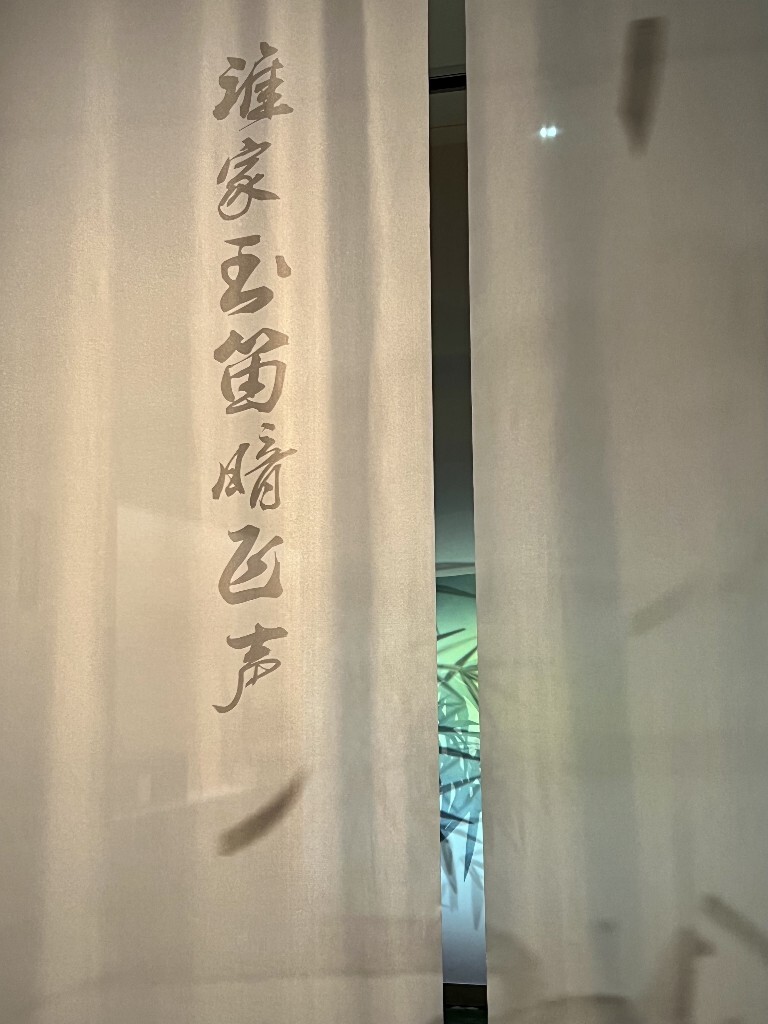 谁家玉笛暗飞声